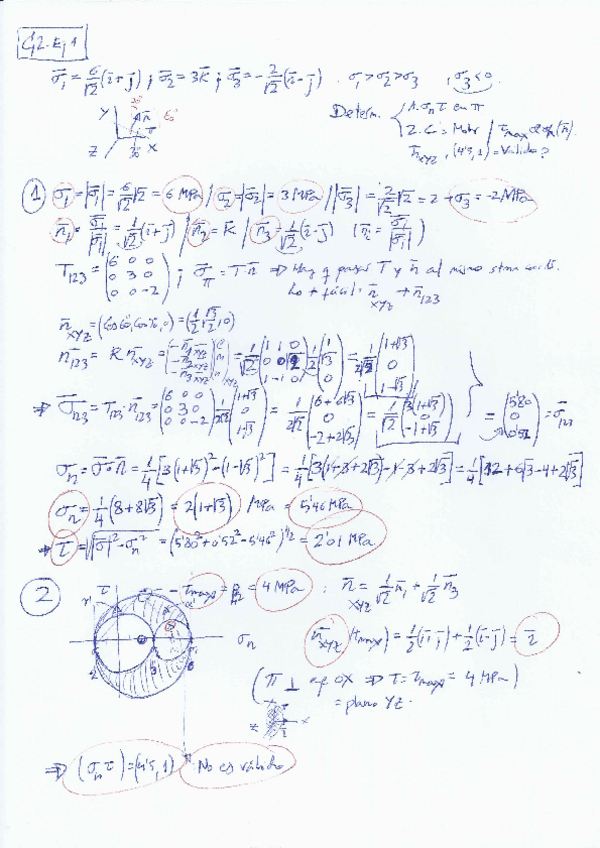 C2. Ej 1
σ̄₁ = 6/√2 (ī+j̄) ; σ̄₂ = 3k̄ ; σ̄₃ = -2/√2 (ī-j̄) . σ₁>σ₂>σ₃ , σ₃<0.
Determ. 1. σₙ τ en π
2. C. Mohr / τmax
(4'5, 1) = Válido?
Y n̄ 60° π
Z 30° X
1 σ₁ = |σ̄₁| = 6/√2 √2 = 6 MPa / σ₂ = |σ̄₂| = 3 MPa // |σ̄₃| = 2/√2 √2 = 2 → σ₃ = -2 MPa
n̄₁ = σ̄₁/|σ̄₁| = 1/√2 (ī+j̄) / n̄₂ = k̄ / n̄₃ = 1/√2 (ī-j̄) (n̄ᵢ = σ̄ᵢ/|σ̄ᵢ|)
T₁₂₃ = (6 0 0; 0 3 0; 0 0 -2) ; σ̄_π = T n̄ ⇒ Hay q pasar T y n̄ al mismo stma coord.
Lo + fácil: n̄_XYZ → n̄₁₂₃
n̄_XYZ = (cos 60, cos 30, 0) = (1/2, √3/2, 0)
n̄₁₂₃ = R n̄_XYZ = 1/√2 (1 1 0; 0 0 √2; 1 -1 0) 1/2 (1; √3; 0) = 1/2√2 (1+√3; 0; 1-√3)
⇒ σ̄₁₂₃ = T₁₂₃ · n̄₁₂₃ = (6 0 0; 0 3 0; 0 0 -2) 1/2√2 (1+√3; 0; 1-√3) = 1/2√2 (6+6√3; 0; -2+2√3) = 1/√2 (3(1+√3); 0; -1+√3) = (5'80; 0; 0'52) = σ̄₁₂₃
σₙ = σ̄·n̄ = 1/4 [3(1+√3)² - (1-√3)²] = 1/4 [3(1+3+2√3) - 1 - 3 + 2√3] = 1/4 [12+6√3-4+2√3]
σₙ = 1/4 (8+8√3) = 2(1+√3) MPa = 5'46 MPa
⇒ τ = √(|σ̄|² - σₙ²) = (5'80² + 0'52² - 5'46²)^1/2 = 2'01 MPa
2 τ τmax = 4 MPa ; n̄_XYZ = 1/√2 n̄₁ + 1/√2 n̄₃
σₙ n̄_XYZ (τmax) = 1/2 (ī+j̄) + 1/2 (ī-j̄) = ī
(π ⊥ eje OX ⇒ τ = τmax = 4 MPa)
= plano YZ.
⇒ (σₙ τ) = (4'5, 1) No es válido